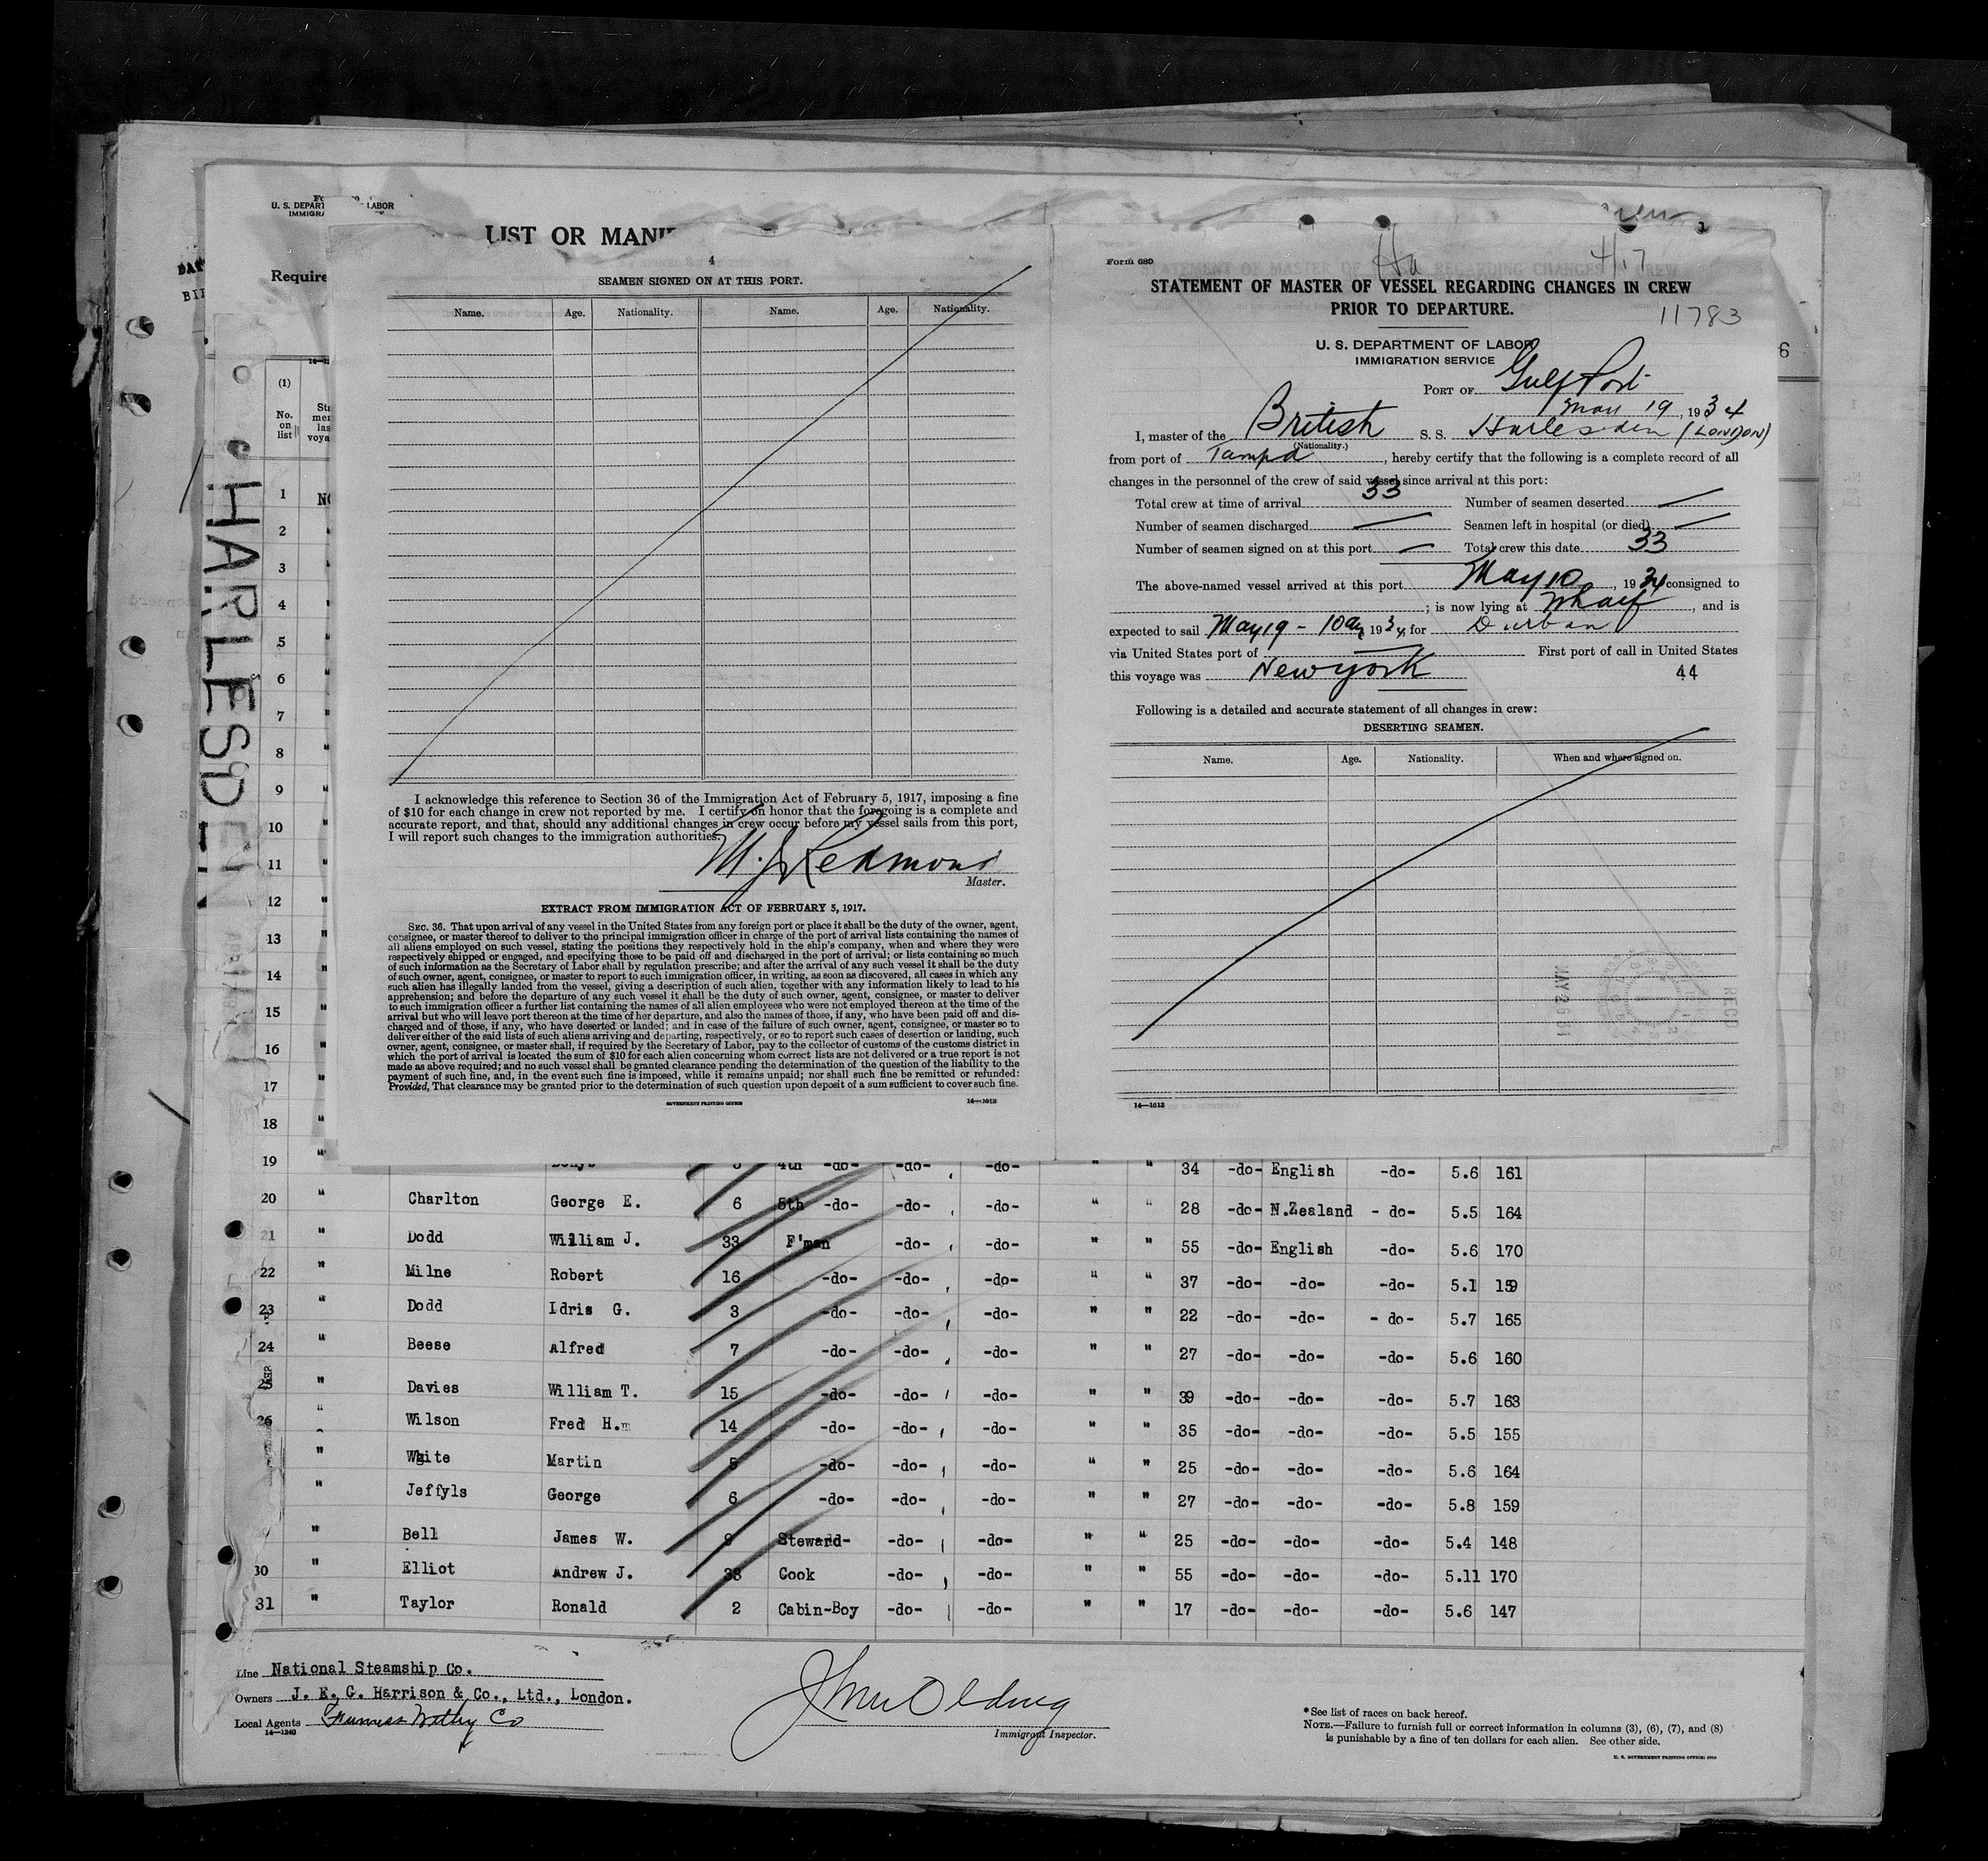 U. S. DEPART LABOR
IMMIGRA
LIST OR MANI
Require
(1)
No. on list
HARLESDEN
4
SEAMEN SIGNED ON AT THIS PORT.
Name. Age. Nationality. Name. Age. Nationality.
I acknowledge this reference to Section 36 of the Immigration Act of February 5, 1917, imposing a fine
of $10 for each change in crew not reported by me. I certify on honor that the foregoing is a complete and
accurate report, and that, should any additional changes in crew occur before my vessel sails from this port,
I will report such changes to the immigration authorities.
M. J. Redmond
Master.
EXTRACT FROM IMMIGRATION ACT OF FEBRUARY 5, 1917.
SEC. 36. That upon arrival of any vessel in the United States from any foreign port or place it shall be the duty of the owner, agent,
consignee, or master thereof to deliver to the principal immigration officer in charge of the port of arrival lists containing the names of
all aliens employed on such vessel, stating the positions they respectively hold in the ship's company, when and where they were
respectively shipped or engaged, and specifying those to be paid off and discharged in the port of arrival; or lists containing so much
of such information as the Secretary of Labor shall by regulation prescribe; and after the arrival of any such vessel it shall be the duty
of such owner, agent, consignee, or master to report to such immigration officer, in writing, as soon as discovered, all cases in which any
such alien has illegally landed from the vessel, giving a description of such alien, together with any information likely to lead to his
apprehension; and before the departure of any such vessel it shall be the duty of such owner, agent, consignee, or master to deliver
to such immigration officer a further list containing the names of all alien employees who were not employed thereon at the time of the
arrival but who will leave port thereon at the time of her departure, and also the names of those, if any, who have been paid off and dis-
charged and of those, if any, who have deserted or landed; and in case of the failure of such owner, agent, consignee, or master so to
deliver either of the said lists of such aliens arriving and departing, respectively, or so to report such cases of desertion or landing, such
owner, agent, consignee, or master shall, if required by the Secretary of Labor, pay to the collector of customs of the customs district in
which the port of arrival is located the sum of $10 for each alien concerning whom correct lists are not delivered or a true report is not
made as above required; and no such vessel shall be granted clearance pending the determination of the question of the liability to the
payment of such fine, and, in the event such fine is imposed, while it remains unpaid; nor shall such fine be remitted or refunded:
Provided, That clearance may be granted prior to the determination of such question upon deposit of a sum sufficient to cover such fine.
GOVERNMENT PRINTING OFFICE 14—1613
Form 689
4/17
STATEMENT OF MASTER OF VESSEL REGARDING CHANGES IN CREW
PRIOR TO DEPARTURE.
11783
U. S. DEPARTMENT OF LABOR
IMMIGRATION SERVICE
PORT OF Gulfport
May 19, 1934
I, master of the British S. S. Harlesden (LONDON)
(Nationality.)
from port of Tampa, hereby certify that the following is a complete record of all
changes in the personnel of the crew of said vessel since arrival at this port:
Total crew at time of arrival 33 Number of seamen deserted —
Number of seamen discharged — Seamen left in hospital (or died) —
Number of seamen signed on at this port — Total crew this date 33
The above-named vessel arrived at this port May 10, 1934 consigned to
; is now lying at Wharf, and is
expected to sail May 19 - 10am 1934, for Durban
via United States port of — First port of call in United States
this voyage was New york 44
Following is a detailed and accurate statement of all changes in crew:
DESERTING SEAMEN.
Name. Age. Nationality. When and where signed on.
14—1613
1
2
3
4
5
6
7
8
9
10
11
12
13
14
15
16
17
18
19 " 4th -do- -do- -do- " " 34 -do- English -do- 5.6 161
20 " Charlton George E. 6 5th -do- -do- -do- " " 28 -do- N.Zealand -do- 5.5 164
21 " Dodd William J. 33 F'man -do- -do- " " 55 -do- English -do- 5.6 170
22 " Milne Robert 16 -do- -do- -do- " " 37 -do- -do- -do- 5.1 159
23 " Dodd Idris G. 3 -do- -do- -do- " " 22 -do- -do- -do- 5.7 165
24 " Beese Alfred 7 -do- -do- -do- " " 27 -do- -do- -do- 5.6 160
" Davies William T. 15 -do- -do- -do- " " 39 -do- -do- -do- 5.7 163
26 " Wilson Fred H. 14 -do- -do- -do- " " 35 -do- -do- -do- 5.5 155
" White Martin 5 -do- -do- -do- " " 25 -do- -do- -do- 5.6 164
" Jeffyls George 6 -do- -do- -do- " " 27 -do- -do- -do- 5.8 159
" Bell James W. 9 Steward- -do- -do- " " 25 -do- -do- -do- 5.4 148
30 " Elliot Andrew J. 33 Cook -do- -do- " " 55 -do- -do- -do- 5.11 170
31 " Taylor Ronald 2 Cabin-Boy -do- -do- " " 17 -do- -do- -do- 5.6 147
Line National Steamship Co.
Owners J. E. G. Harrison & Co., Ltd., London.
Local Agents Furness Withy Co
14—1240
Immigrant Inspector.
*See list of races on back hereof.
NOTE.—Failure to furnish full or correct information in columns (3), (6), (7), and (8)
is punishable by a fine of ten dollars for each alien. See other side.